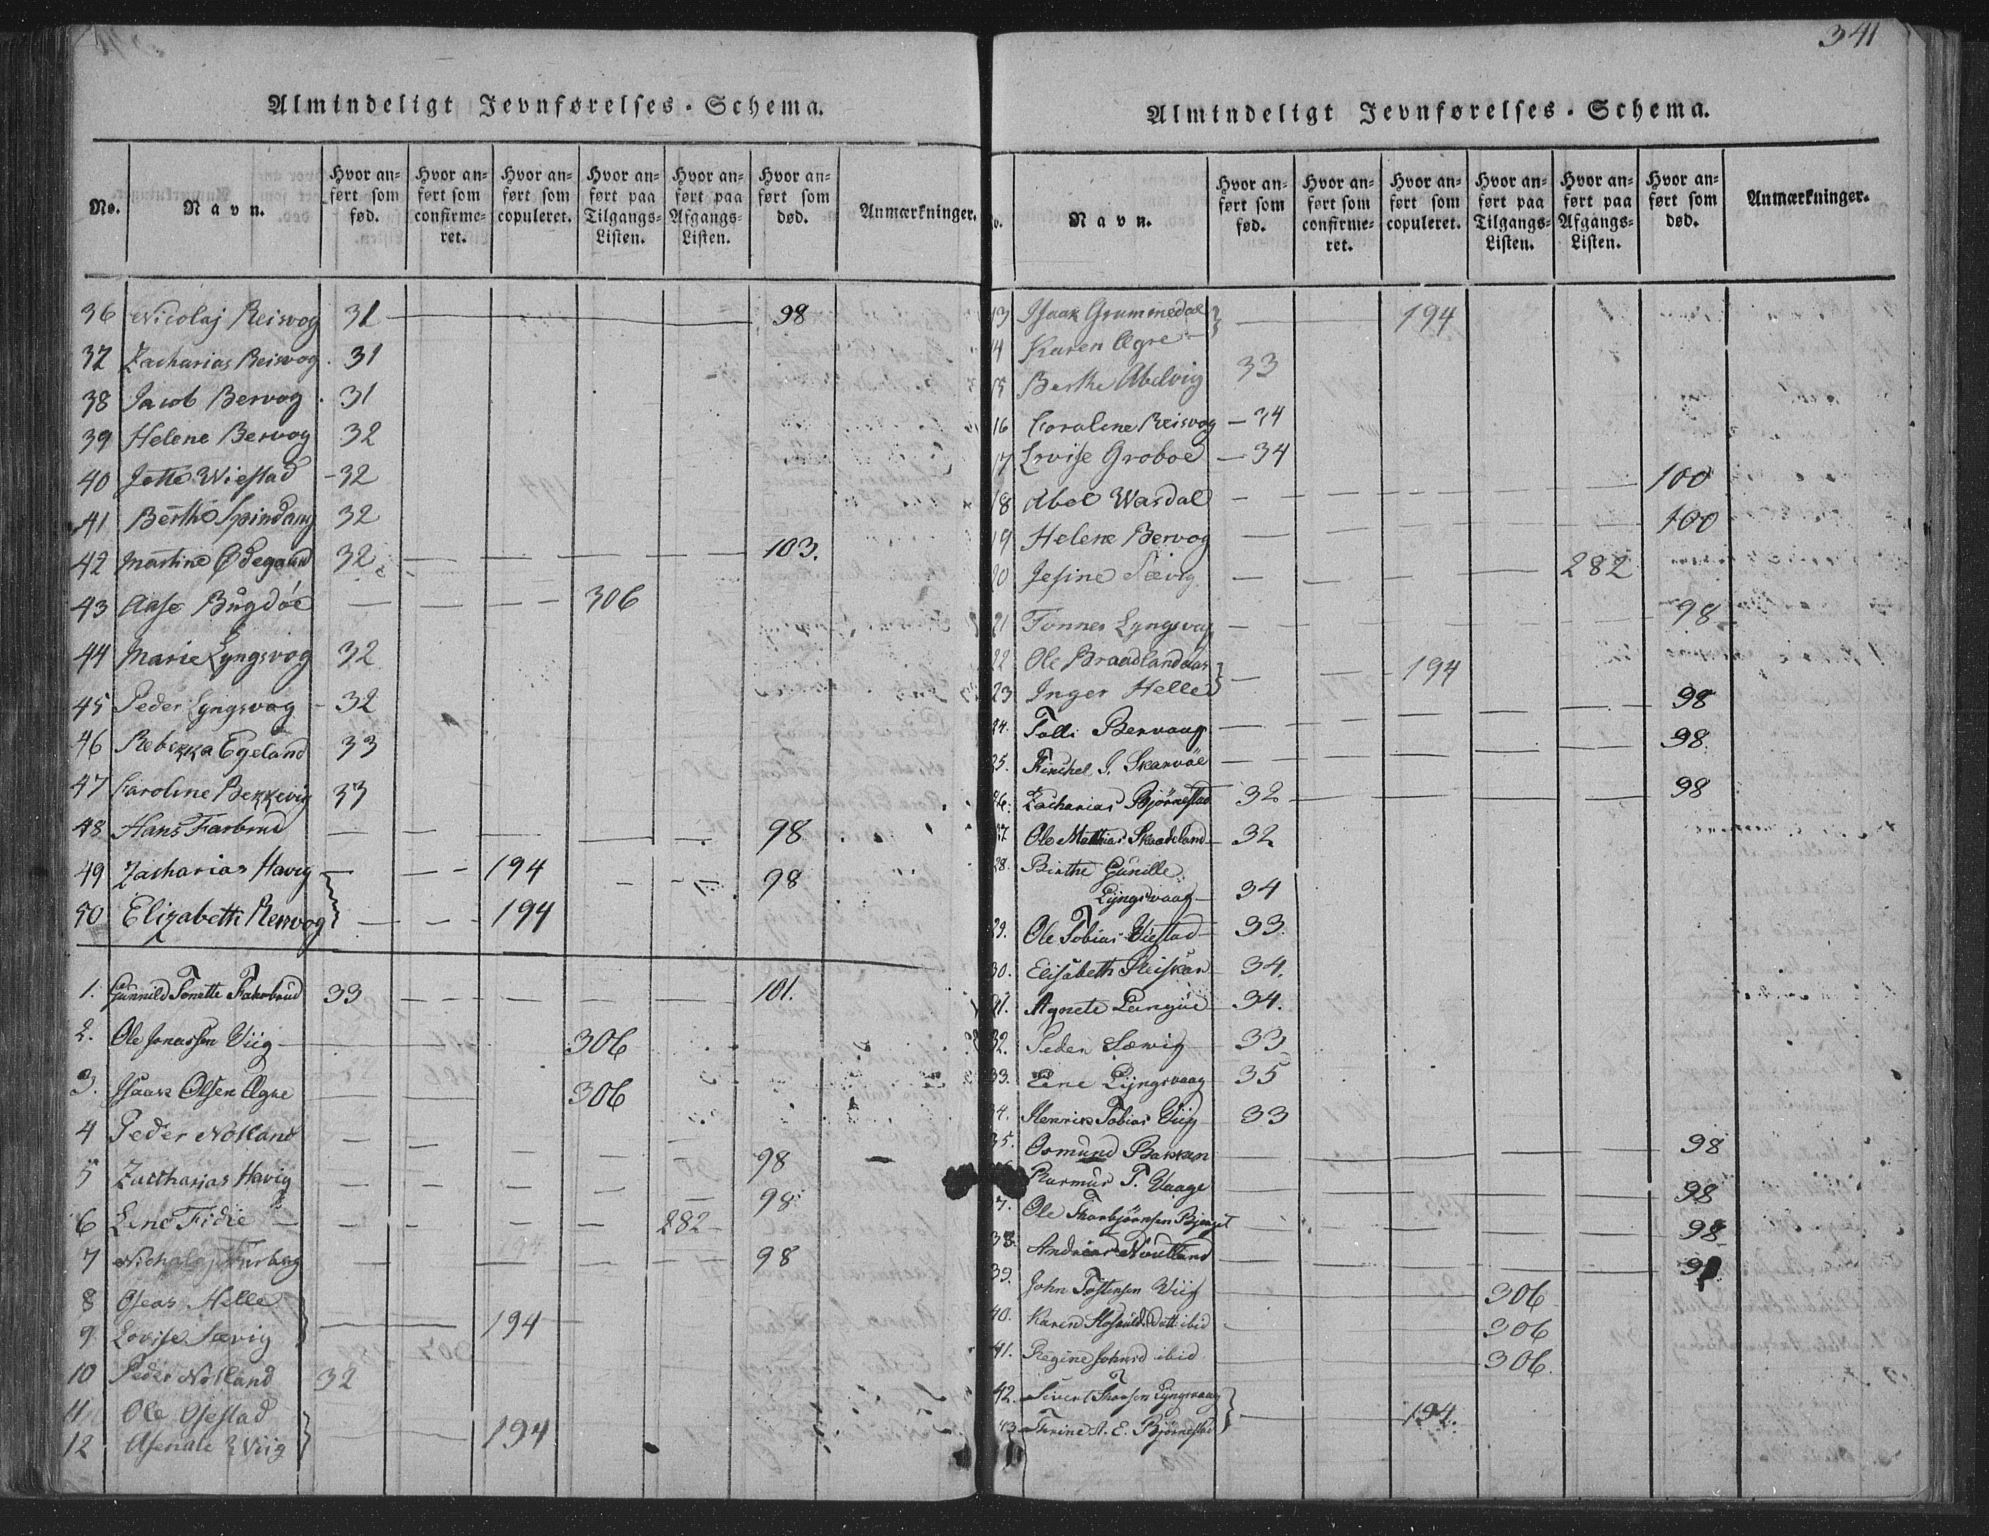 341
Almindeligt Jevnførelses-Schema.
No. Navn. Hvor anført som fød. Hvor anført som confirmeret. Hvor anført som copuleret. Hvor anført paa Tilgangs-Listen. Hvor anført paa Afgangs-Listen. Hvor anført som død. Anmærkninger.
36 Nicolaj Reisvog 31 98
37 Zacharias Reisvog 31
38 Jacob Bervog 31
39 Helene Bervog 32
40 Jotte Wiestad 32
41 Berthe Spindang 32
42 Martine Ødegaard 32 103.
43 Aase Bugdøe 306
44 Marie Lyngsvog 32
45 Peder Lyngsvog 32
46 Rebekka Egeland 33
47 Caroline Bekkevig 33
48 Hans Farbrud 98
49 Zacharias Havig 194 98
50 Elizabeth Rersvog 194
1. Gunnild Tonette Fahrbrud 33 101.
2. Ole Jonassen Viig 306
3. Isaak Olsen Egre 306
4 Peder Notland 98
5 Zaccharias Havig 98
6 Lene Fidie 282
7 Nicholaj 98
8 Oseas Helle
9 Lovise Sævig 194
10 Peder Notland 32
11 Ole Osestad
12 Asenate Wiig 194
Almindeligt Jevnførelses-Schema.
No. Navn. Hvor anført som fød. Hvor anført som confirmeret. Hvor anført som copuleret. Hvor anført paa Tilgangs-Listen. Hvor anført paa Afgangs-Listen. Hvor anført som død. Anmærkninger.
13 Isaak Grummedal 194
14 Karen Egre
15 Berthe Abelvig 33
16 Coraline Reisvog 34
17 Lovise Groboe 34
18 Abel Wasdal 100
19 Helene Bervog 100
20 Jesine Sævig 282
21 Tønnes Lyngsvog 98
22 Ole Braadlandaas 194
23 Inger Helle
24. Tolli Bervaag 98
25. J. Skarvøe 98
26. Zacharias Bjørnestad 32 98
27. Ole Mathias Skaadeland 32
28. Birthe Gunille
Lyngsvaag 34
29. Ole Tobias Viestad 33
30. Elisabeth 34.
31. Agnete Langøe 34.
32. Peder Sæwig 33
33. Eine Lyngsvaag 35
34. Henrik Tobias Viig 33
35. Osmund Bakken 98
Rasmus T. Vaage 98
37. Ole Thorbjørnsen 98
38. Andreas Noutland
39. John Tostensen Viig 306
40. Karen datt ibid 306
41. Regine Johnsd ibid 306
42. Sivert Lyngsvaag
43. Thrine A. E. Bjørnestad 194.